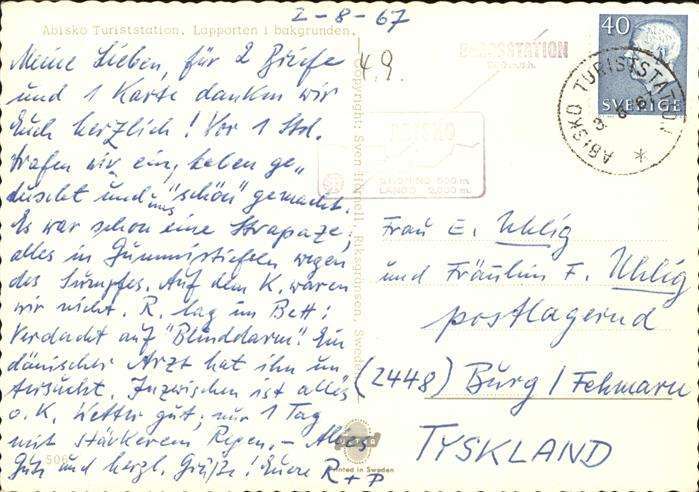 2-8-67
Abisko Turiststation. Lapporten i bakgrunden.
Meine Lieben, für 2 Briefe
und 1 Karte danken wir
Euch herzlich! Vor 1 Std.
trafen wir ein, haben ge-
duscht und uns "schön" gemacht.
Es war schon eine Strapaze;
alles in Gummistiefeln wegen
des Sumpfes. Auf dem K. waren
wir nicht. R. lag im Bett:
Verdacht auf "Blinddarm". Ein
dänischer Arzt hat ihn un
tersucht. Inzwischen ist alles
o.K. Wetter gut; nur 1 Tag
mit stärkerem Regen. - Alles
Gute und herzl. Grüße! Eure R + P
506
4.9.
Copyright: Sven Hörnell, Riksgränsen, Sweden
Printed in Sweden
TURISTSTATION
ABISKO
LANGD 2,000 m.
40
SVERIGE
ABISKO TURISTSTATION
Frau E. Uhlig
und Fräulein F. Uhlig
postlagernd
(2448) Burg / Fehmarn
TYSKLAND